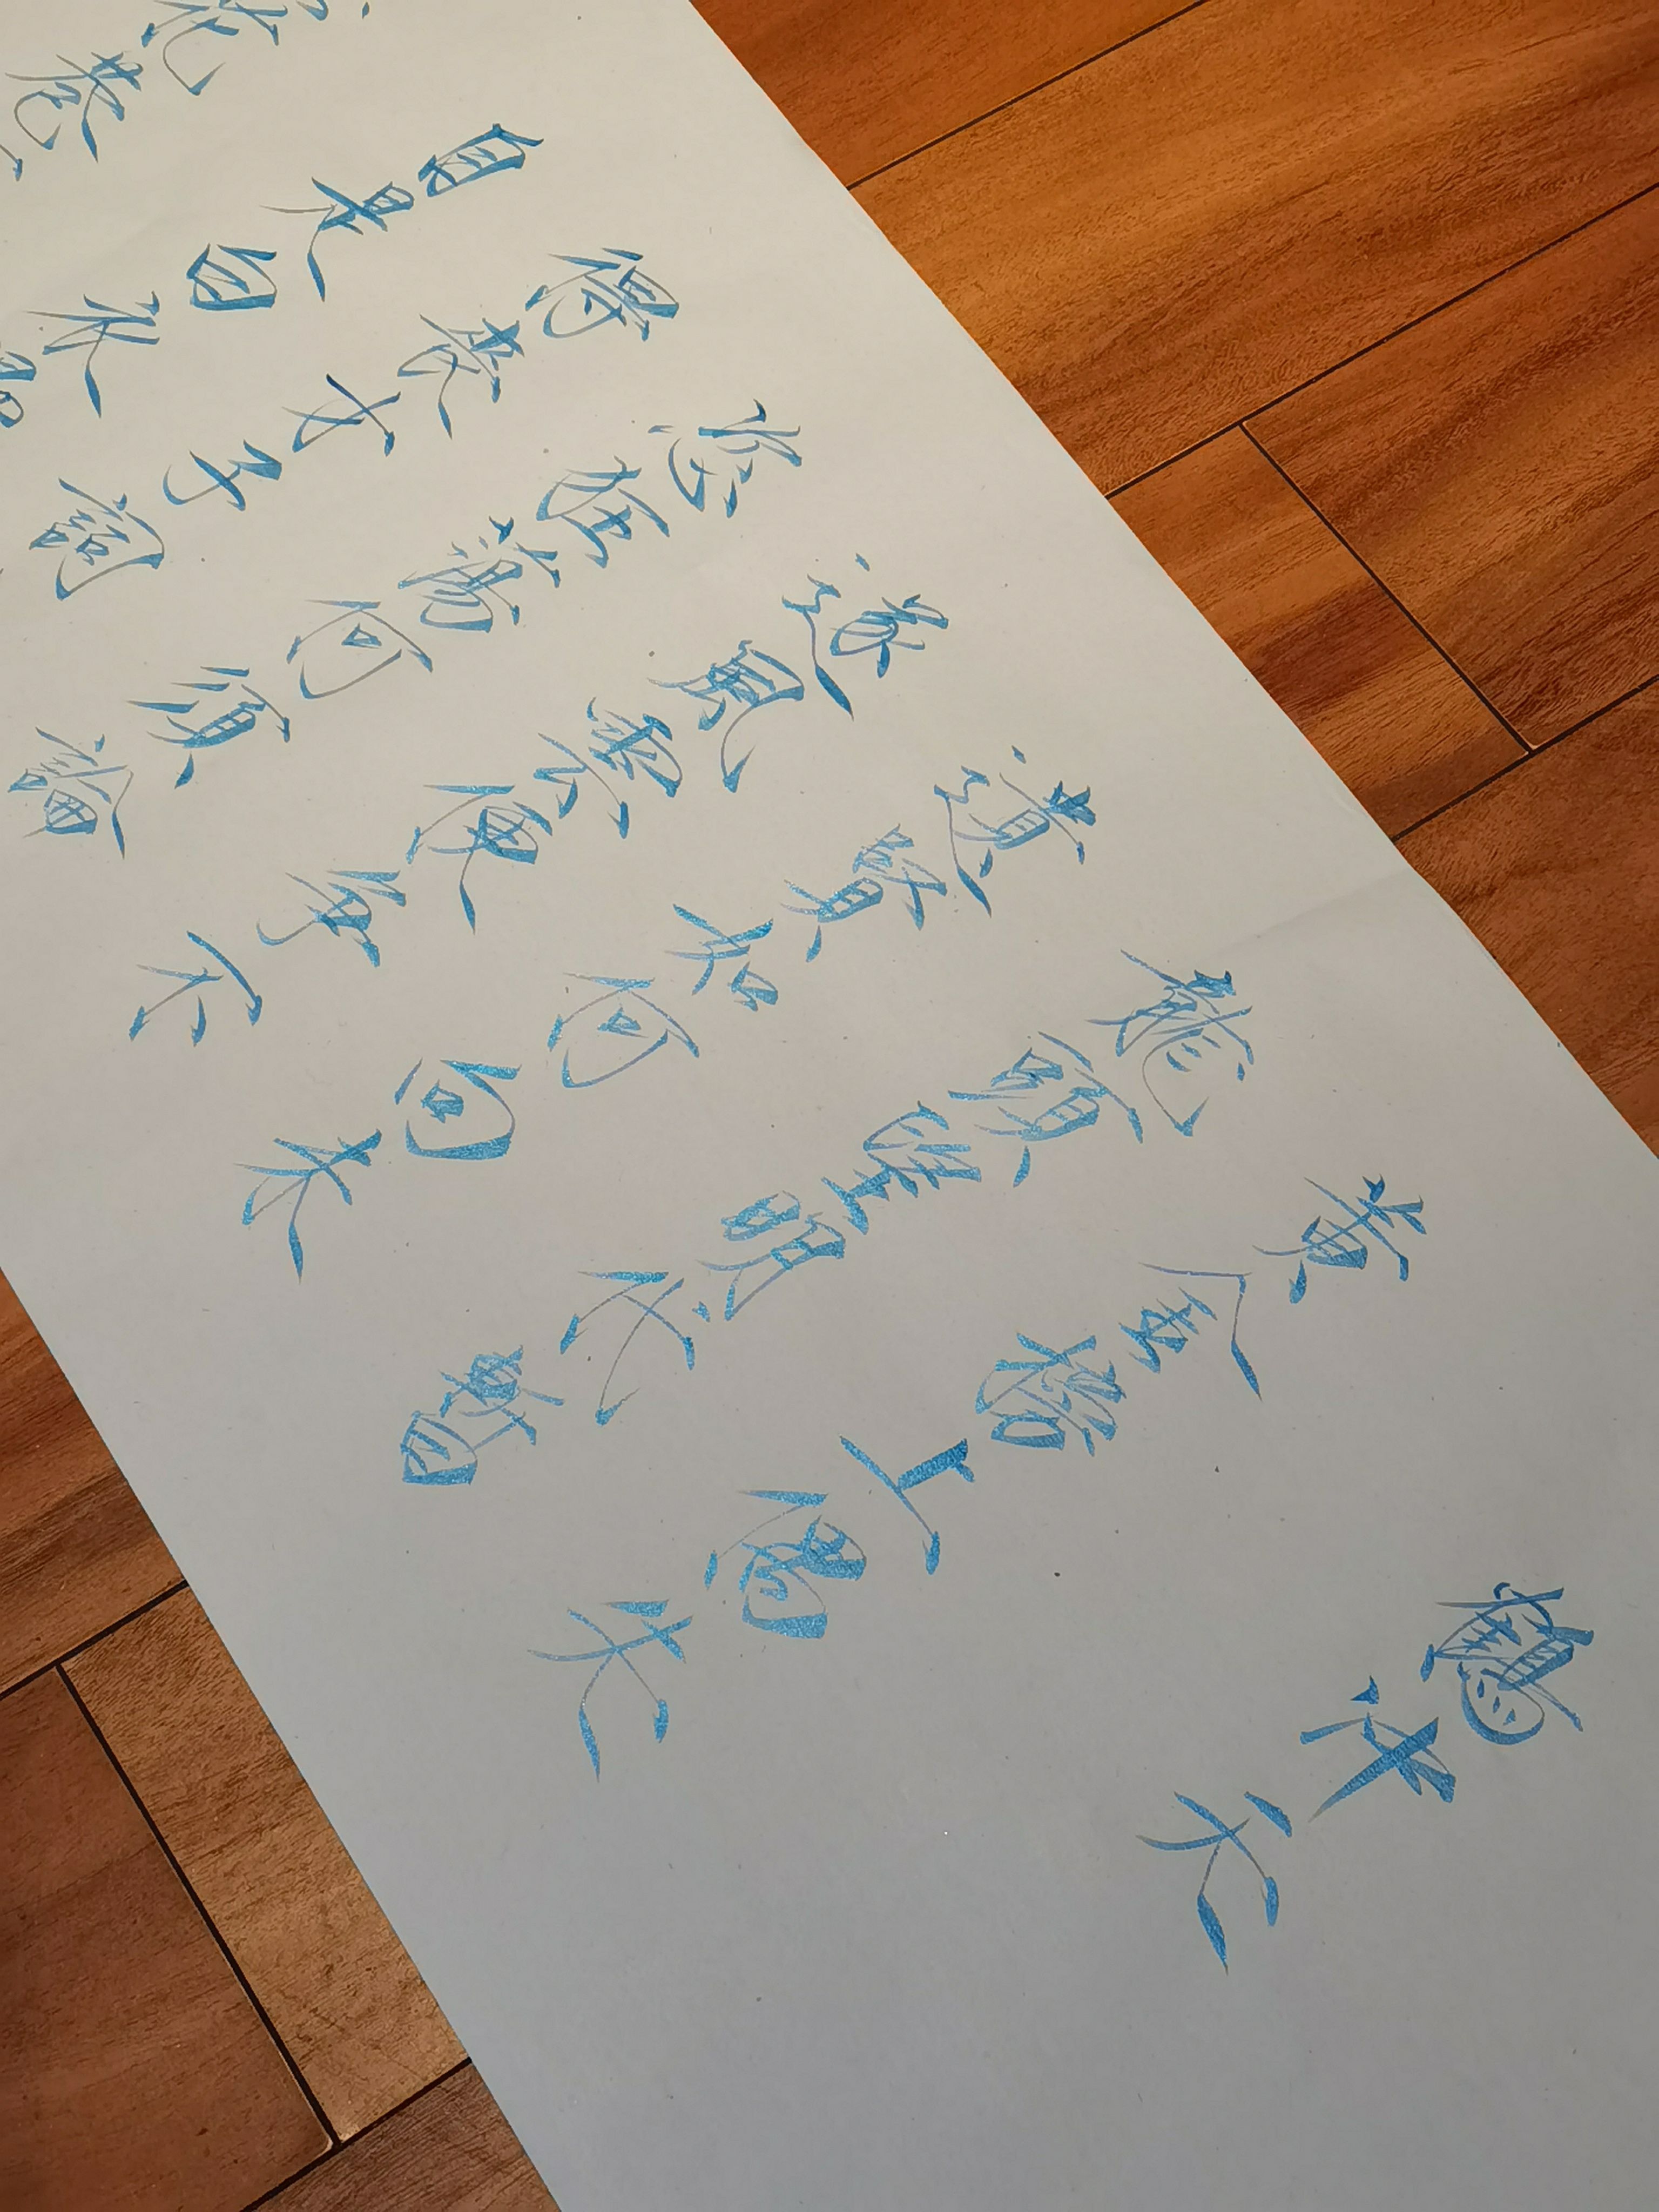 鶴冲天
黄金榜上偶失
龍頭望明代暫
遺賢如何向未
遂風雲便爭不
恣狂蕩何須論
得喪才子詞
自是白衣
花巷